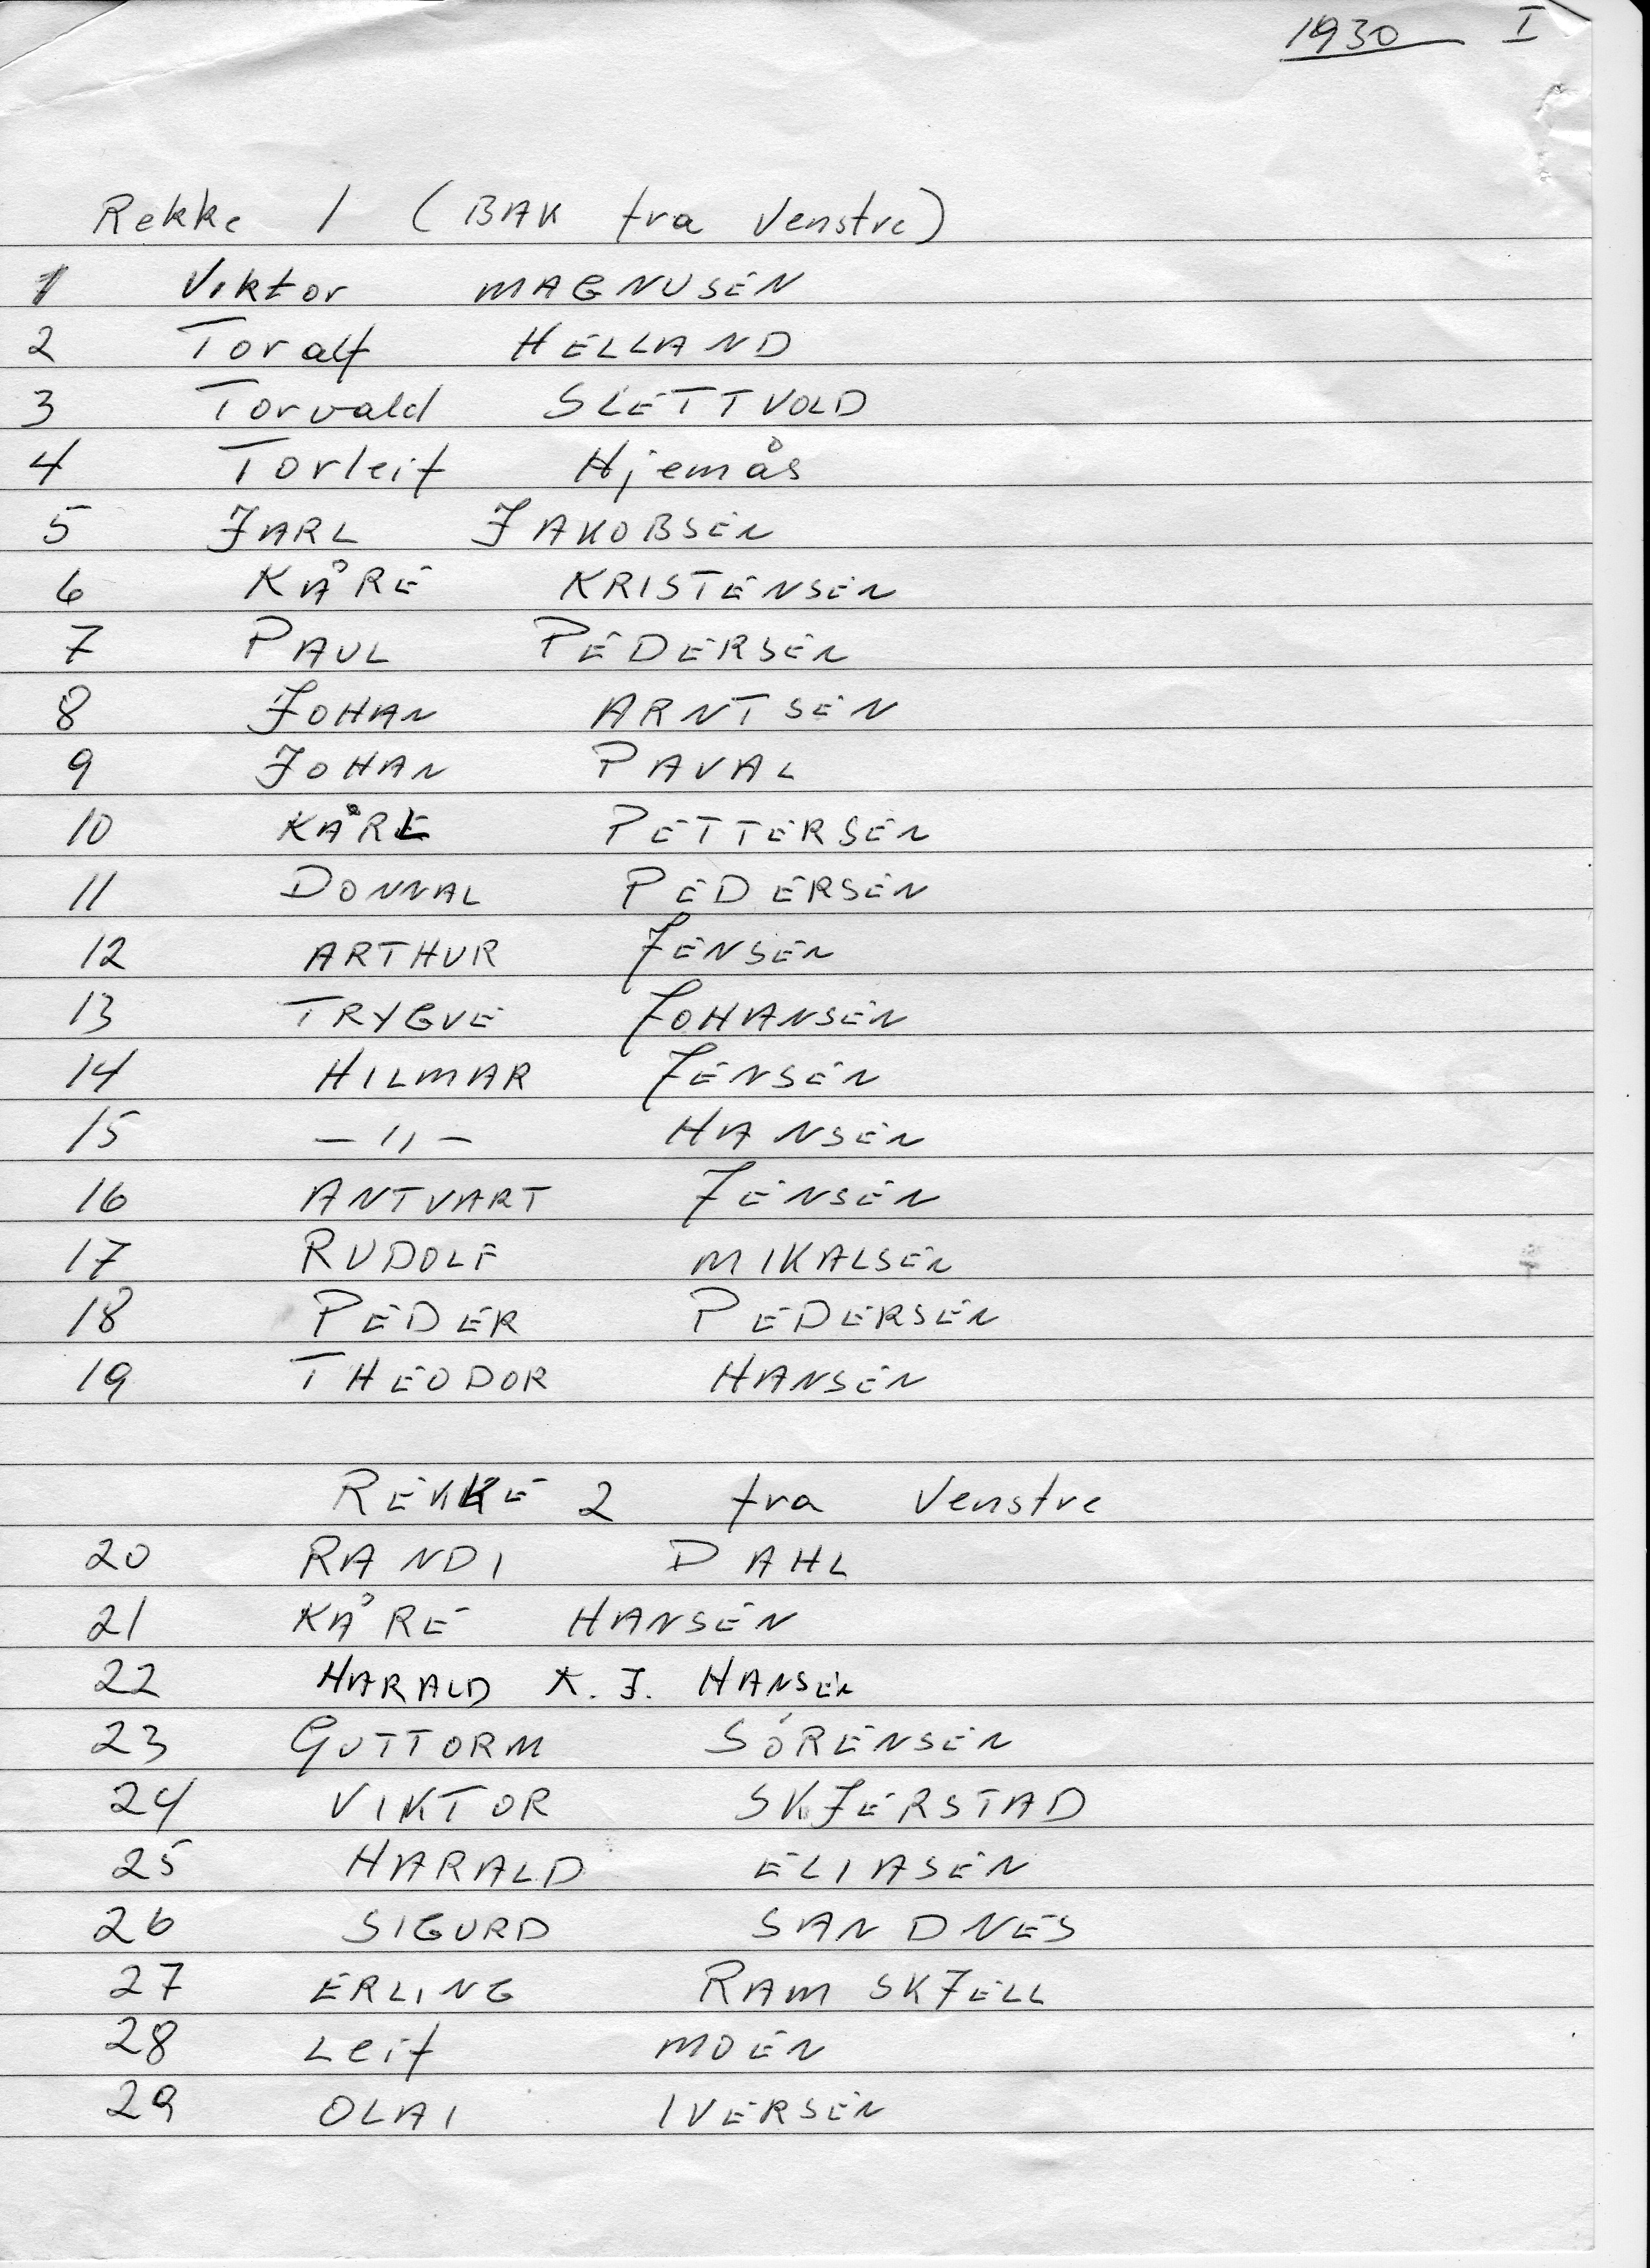 1930 I
Rekke 1 (BAK fra Venstre)
1 Viktor MAGNUSEN
2 Toralf HELLAND
3 Torvald SLETTVOLD
4 Torleif Hjemås
5 JARL JAKOBSEN
6 KÅRE KRISTENSEN
7 PAUL PEDERSEN
8 JOHAN ARNTSEN
9 JOHAN PAVAL
10 KÅRE PETTERSEN
11 DONNAL PEDERSEN
12 ARTHUR JENSEN
13 TRYGVE JOHANSEN
14 HILMAR JENSEN
15 -,,- HANSEN
16 ANTVART JENSEN
17 RUDOLF MIKALSEN
18 PEDER PEDERSEN
19 THEODOR HANSEN
REKKE 2 fra Venstre
20 RANDI DAHL
21 KÅRE HANSEN
22 HARALD K. J. HANSEN
23 GUTTORM SÓRENSEN
24 VIKTOR SKJERSTAD
25 HARALD ELIASEN
26 SIGURD SANDNES
27 ERLING RAMSKJELL
28 Leif MOEN
29 OLAI IVERSEN